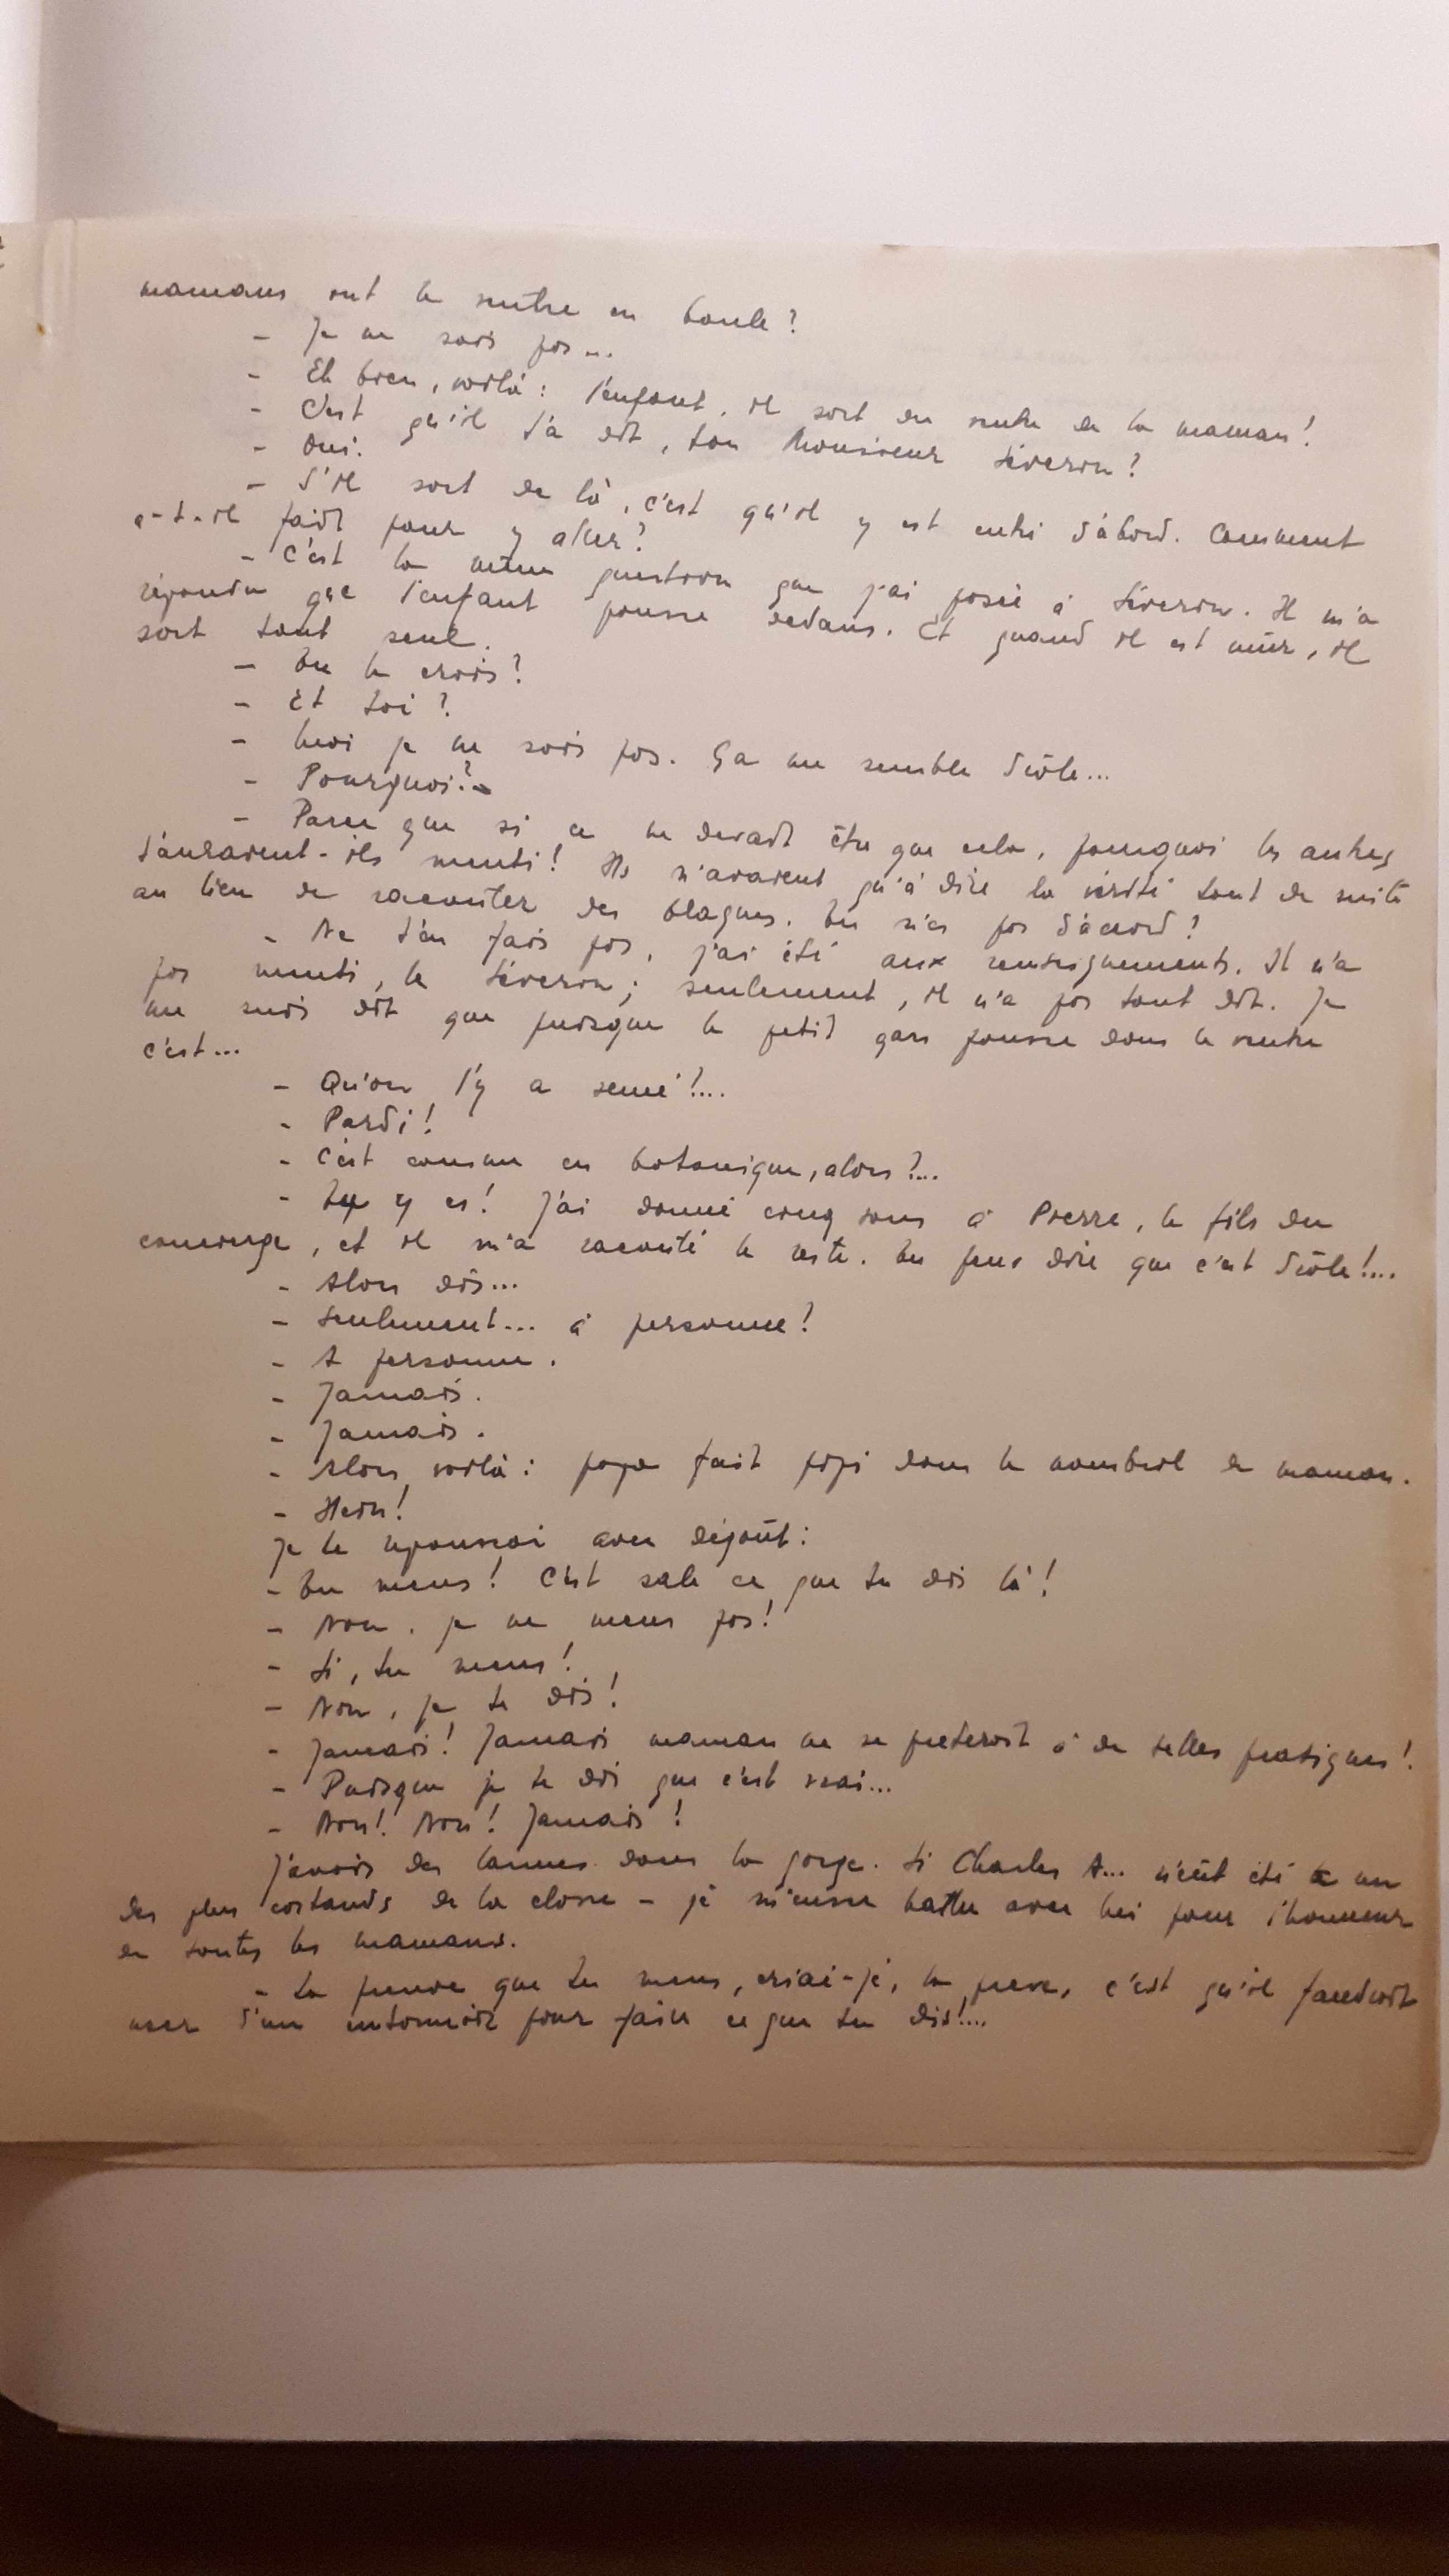 mamans ont le ventre en boule?
- Je ne sais pas...
- Eh bien, voilà : l'enfant, il sort du ventre de la maman!
- C'est qu'il t'a dit, ton Monsieur Séverin?
- Oui.
- S'il sort de là, c'est qu'il y est entré d'abord. Comment
a-t-il fait pour y aller?
- C'est la même question que j'ai posée à Séverin. Il m'a
répondu que l'enfant pousse dedans. Et quand il est mûr, il
sort tout seul.
- Tu le crois?
- Et toi?
- Moi je ne sais pas. Ça me semble drôle...
- Pourquoi?
- Parce que si ce ne devait être que cela, pourquoi les autres
t'auraient-ils menti! Ils n'avaient qu'à dire la vérité tout de suite
au lieu de raconter des blagues. Tu n'es pas d'accord?
- Ne t'en fais pas, j'ai été aux renseignements. Il n'a
pas menti, le Séverin; seulement, il n'a pas tout dit. Je
me suis dit que puisque le petit gars pousse dans le ventre
c'est...
- Qu'on l'y a semé!...
- Pardi!
- C'est comme en botanique, alors?...
- Tu y es! J'ai donné cinq sous à Pierre, le fils du
concierge, et il m'a raconté le reste. Tu peux dire que c'est drôle!...
- Alors dis...
- Seulement... à personne!
- A personne.
- Jamais.
- Jamais.
- Alors, voilà : papa fait pipi dans le nombril de maman.
- Hein!
Je le repoussai avec dégoût :
- Tu mens! C'est sale ce que tu dis là!
- Non, je ne mens pas!
- Si, tu mens!
- Non, je te dis!
- Jamais! Jamais maman ne se preterait à de telles pratiques!
- Puisque je te dis que c'est vrai...
- Non! Non! Jamais!
J'avais des larmes dans la gorge. Si Charles A... n'eût été un
des plus costauds de la classe - je m'eusse battu avec lui pour l'honneur
de toutes les mamans.
- La preuve que tu mens, criai-je, la preuve, c'est qu'il faudrait
user d'un entonnoir pour faire ce que tu dis!...